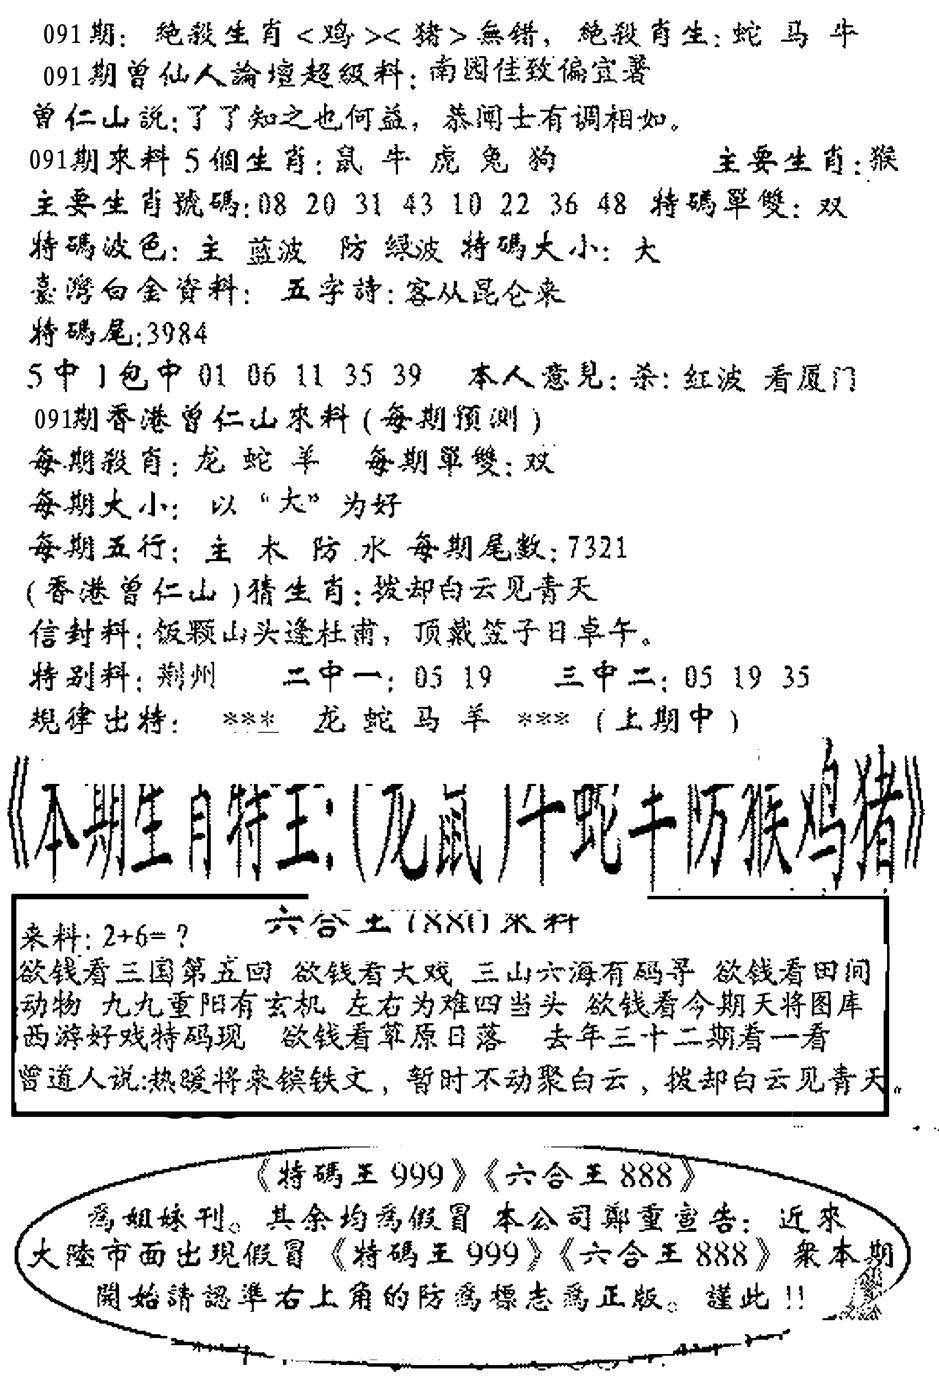 091期：絶殺生肖<鸡><猪>無错，絶殺肖生：蛇 马 牛
091期曾仙人論壇超級料：南园佳致偏宜暑
曾仁山説：了了知之也何益，恭闻士有调相如。
091期來料 5個生肖：鼠 牛 虎 兔 狗 主要生肖：猴
主要生肖號碼：08 20 31 43 10 22 36 48 特碼單雙：双
特碼波色：主 蓝波 防 绿波 特碼大小：大
臺灣白金資料： 五字詩：客从昆仑来
特碼尾：3984
5中1包中 01 06 11 35 39 本人意見：杀：红波 看厦门
091期香港曾仁山來料（每期預測）
每期殺肖：龙 蛇 羊 每期單雙：双
每期大小： 以“大”为好
每期五行： 主 木 防 水 每期尾数：7321
（香港曾仁山）猜生肖：拨却白云见青天
信封料：饭颗山头逢杜甫，顶戴笠子日卓午。
特别料：荆州 二中一：05 19 三中二：05 19 35
規律出特： *** 龙 蛇 马 羊 *** （上期中）
《本期生肖特王：（龙鼠）牛蛇羊防猴鸡猪》
六合王1880來料
来料：2+6=？
欲钱看三国第五回 欲钱看大戏 三山六海有码寻 欲钱看田间
动物 九九重阳有玄机 左右为难四当头 欲钱看今期天将图库
西游好戏特码现 欲钱看草原日落 去年三十二期看一看
曾道人说：热暖将来镔铁文，暂时不动聚白云，拨却白云见青天。
《特碼王999》《六合王888》
為姐妹刊。其余均為假冒 本公司鄭重宣告：近來
大陸市面出現假冒《特碼王999》《六合王888》衆本期
開始請認準右上角的防為標志為正版。謹此!!